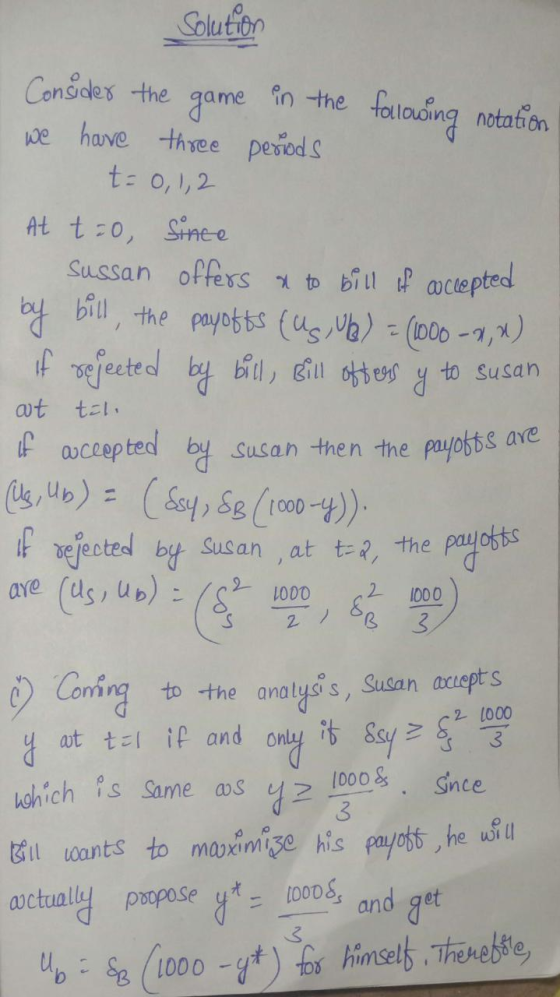 Solution
Consider the game in the following notation
we have three periods
t = 0, 1, 2
At t = 0, Since
Sussan offers x to bill if accepted
by bill, the payoffs (u_S, u_B) = (1000 - x, x)
if rejected by bill, Bill offers y to susan
at t=1.
if accepted by susan then the payoffs are
(u_s, u_b) = (δ_s y, δ_B (1000 - y)).
If rejected by susan, at t=2, the payoffs
are (u_s, u_b) = (δ_s^2 1000/2, δ_B^2 1000/3)
i) Coming to the analysis, Susan accepts
y at t=1 if and only if δ_s y ≥ δ_s^2 1000/3
which is same as y ≥ 1000δ_s/3. Since
Bill wants to maximize his payoff, he will
actually propose y* = 1000δ_s/3 and get
u_b = δ_B (1000 - y*) for himself. Therefore,